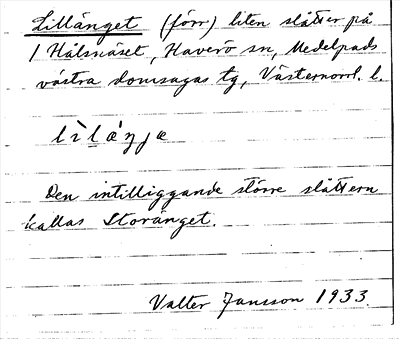 Lillänget (förr) liten slåtter på
1 Hålsnäset, Haverö sn, Medelpads
västra domsagas tg, Västernorrl. l.
Den intilliggande större slåttern
kallas Storänget.
Valter Jansson 1933.